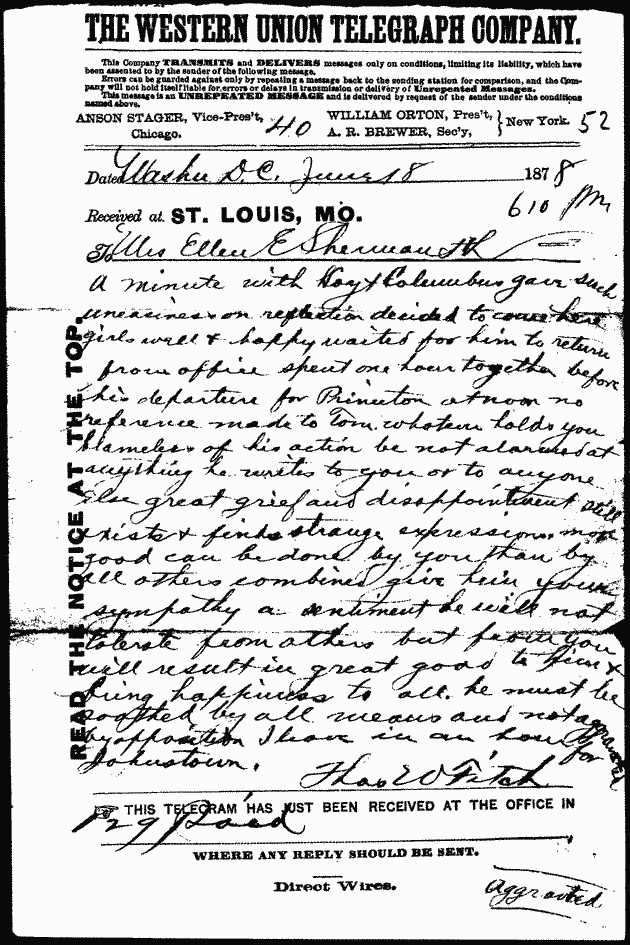 THE WESTERN UNION TELEGRAPH COMPANY.
This Company TRANSMITS and DELIVERS messages only on conditions, limiting its liability, which have
been assented to by the sender of the following message.
Errors can be guarded against only by repeating a message back to the sending station for comparison, and the Com-
pany will not hold itself liable for errors or delays in transmission or delivery of Unrepeated Messages.
This message is an UNREPEATED MESSAGE and is delivered by request of the sender under the conditions
named above.
ANSON STAGER, Vice-Pres't, Chicago. 40 WILLIAM ORTON, Pres't, A. R. BREWER, Sec'y, } New York. 52
Dated Washn D.C. June 18 1878
Received at ST. LOUIS, MO. 610 Pm
To Mrs Ellen E Sherman
A minute with Hoyt Columbus gave such
uneasiness on reflection decided to come here
girls well & happy waited for him to return
from office spent one hour together before
his departure for Princeton at noon no
reference made to Tom whatever holds you
blameless of his action be not alarmed at
anything he writes to you or to anyone
else great grief and disappointment still
exists & finds strange expression. more
good can be done by you than by
all others combined give him your
sympathy a sentiment he will not
tolerate from others but from you
will result in great good to him &
bring happiness to all. he must be
soothed by all means and not aggravated
by opposition I leave in an hour for
Johnstown.
Thos W Fitch
READ THE NOTICE AT THE TOP.
THIS TELEGRAM HAS JUST BEEN RECEIVED AT THE OFFICE IN
129 Paid
WHERE ANY REPLY SHOULD BE SENT.
Direct Wires.
Aggravated